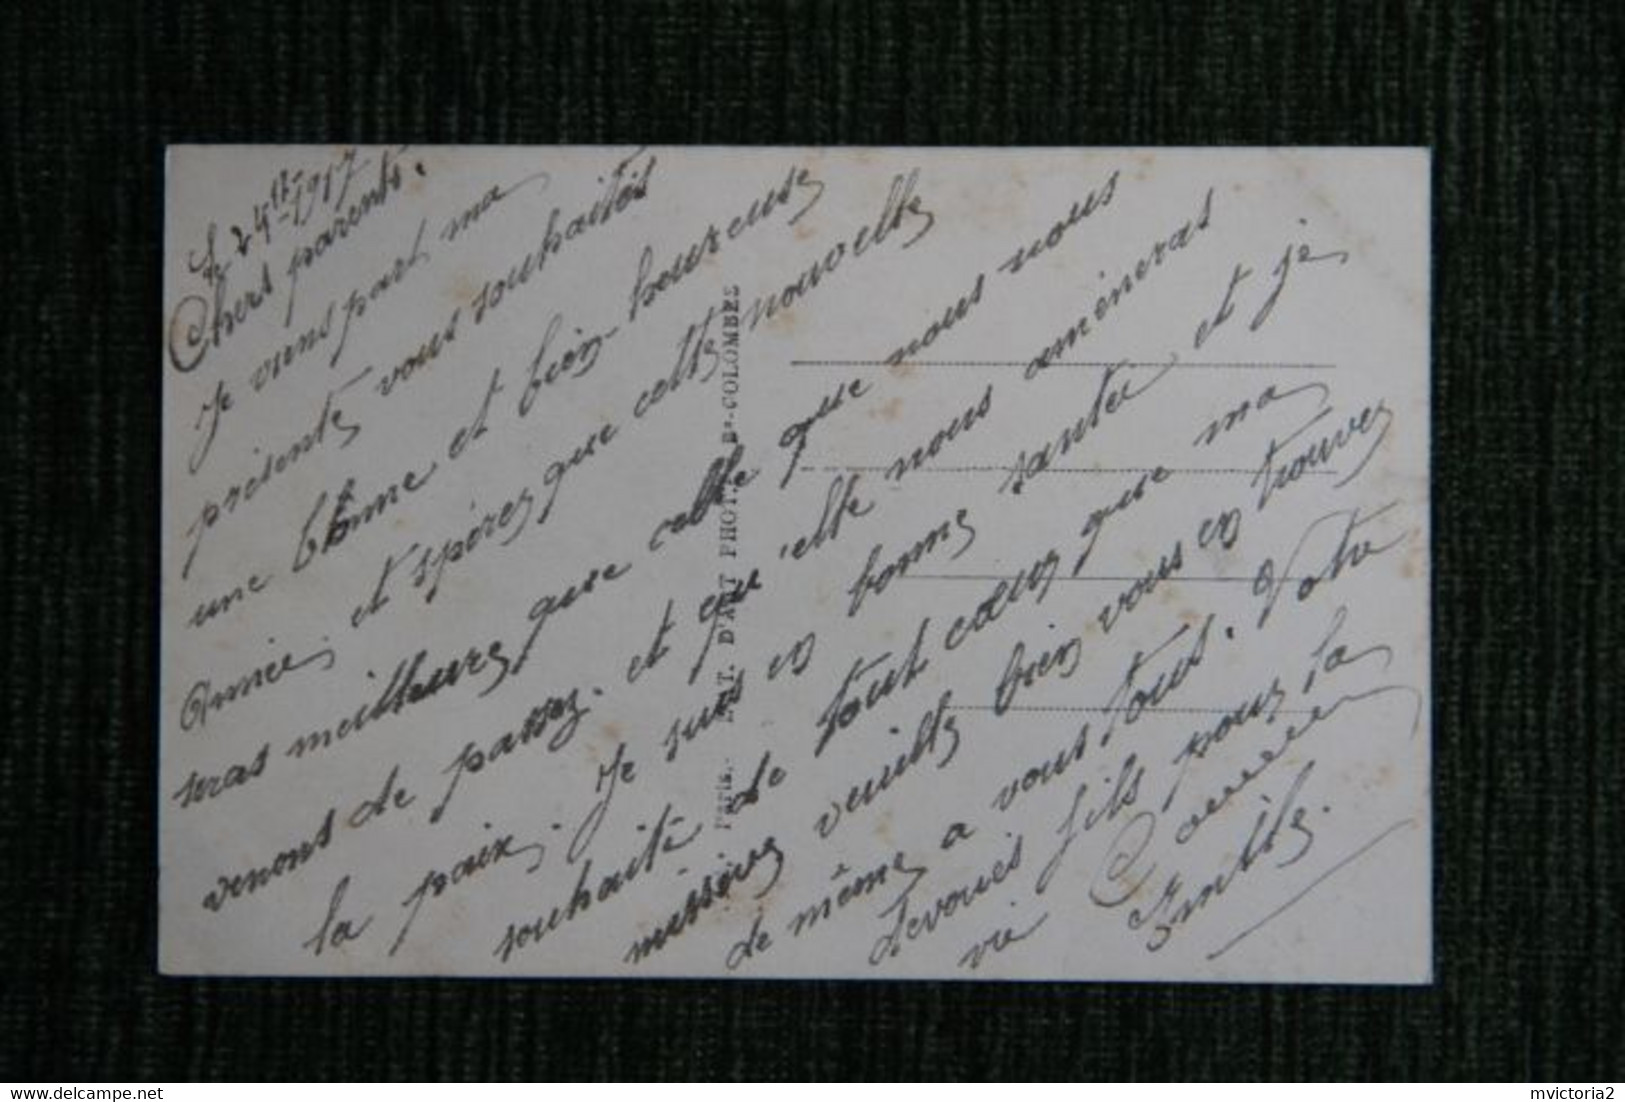 24 1917
Chers parents.
Je viens part ma
présente vous souhaités
une bonne et bien heureuse
Année, et espérez que cette nouvelle
seras meilleure que celle que nous nous
venons de passez. et qu'elle nous amèneras
la paix, Je suis en bonne santée et je
souhaite de tout cœur que ma
missive vueille bien vous en trouvez
de même a vous tous. Votre
devoués fils pour la
vie
PARIS. - INT. D'ART PHOT. Bs-COLOMBES
mvictoria2
www.delcampe.net